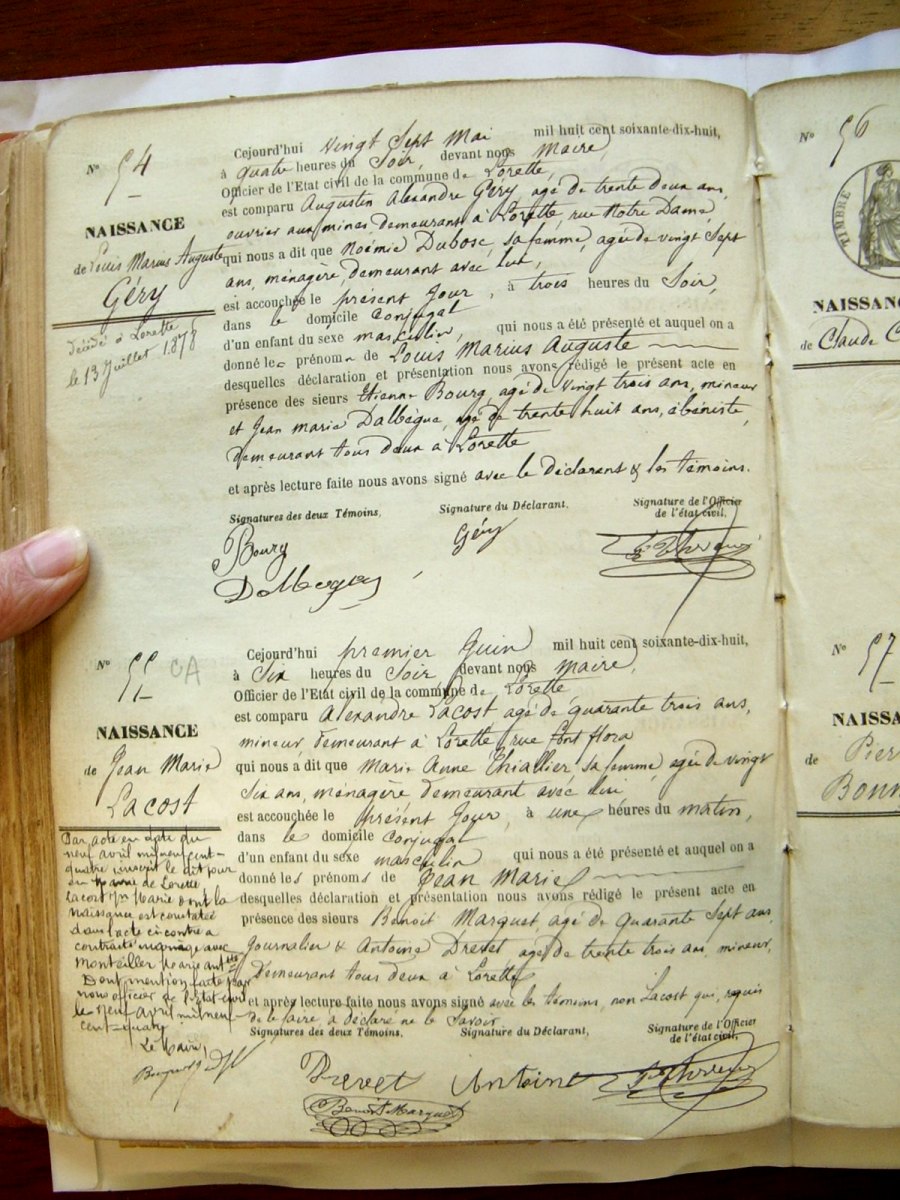 N° 54
NAISSANCE
de Louis Marius Auguste
Géry
décédé à Lorette
le 13 Juillet 1878
Cejourd'hui vingt Sept Mai mil huit cent soixante-dix-huit,
à quatre heures du Soir, devant nous Maire,
Officier de l'Etat civil de la commune de Lorette,
est comparu Augustin Alexandre Géry, agé de trente deux ans,
ouvrier aux mines, demeurant à Lorette, rue Notre Dame,
qui nous a dit que Noémie Dubosc, sa femme, agée de vingt Sept
ans, ménagère, demeurant avec lui,
est accouchée le présent Jour, à trois heures du Soir,
dans le domicile Conjugal
d'un enfant du sexe masculin, qui nous a été présenté et auquel on a
donné les prénoms de Louis Marius Auguste
desquelles déclaration et présentation nous avons rédigé le présent acte en
présence des sieurs Etienne Bourg, agé de vingt trois ans, mineur
et Jean marie Dalbègue, agé de trente huit ans, ébéniste,
demeurant tous deux à Lorette
et après lecture faite nous avons signé avec le déclarant & les témoins.
Signatures des deux Témoins,
Signature du Déclarant.
Signature de l'Officier
de l'état civil,
Bourg
Géry
N° 55 OA
NAISSANCE
de Jean Marie
Lacost
Par acte en date du
neuf avril mil neuf cent
quatre inscrit le dit jour
en Mairie de Lorette
Lacost Jn Marie dont la
naissance est constatée
dans l'acte ci contre a
contracté mariage avec
Monteiller Marie Antte
Dont mention faite par
nous officier de l'état civil
le neuf avril mil neuf
cent quatre
Le Maire,
Cejourd'hui premier Guin mil huit cent soixante-dix-huit,
à Six heures du Soir devant nous Maire,
Officier de l'Etat civil de la commune de Lorette
est comparu Alexandre Lacost, agé de quarante trois ans,
mineur, demeurant à Lorette, rue Pont flora
qui nous a dit que Marie Anne Thiallier, sa femme, agée de vingt
Six ans, ménagère demeurant avec lui
est accouchée le présent Jour, à une heures du matin,
dans le domicile Conjugal
d'un enfant du sexe masculin qui nous a été présenté et auquel on a
donné les prénoms de Jean Marie
desquelles déclaration et présentation nous avons rédigé le présent acte en
présence des sieurs Benoit Marquet, agé de Quarante Sept ans,
Journalier & Antoine Drevet, agé de trente trois ans, mineur,
demeurant tous deux à Lorette
et après lecture faite nous avons signé avec les témoins, non Lacost qui, requis
de le faire a déclaré ne le Savoir
Signatures des deux Témoins.
Signature du Déclarant,
Signature de l'Officier
de l'état civil,
Drevet Antoine
Benoit Marquet
N° 56
TIMBRE
NAISSAN
de Claude C
N° 57
NAISSA
de Pier
Bonn